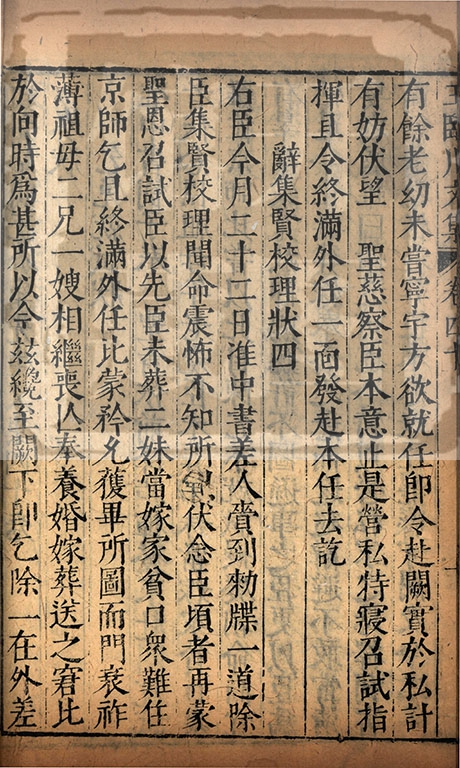 王臨川文集 卷四十
有餘老幼未嘗寧宇方欲就任卽令赴闕實於私計
有妨伏望 聖慈察臣本意止是營私特寢召試指
揮且令終滿外任一面發赴本任去訖
辭集賢校理狀四
右臣今月二十二日准中書差人賫到勑牒一道除
臣集賢校理聞命震怖不知所以伏念臣頃者再蒙
聖恩召試臣以先臣未葬二妹當嫁家貧口衆難住
京師乞且終滿外任比蒙矜允獲畢所圖而門衰祚
薄祖母二兄一嫂相繼喪亡奉養婚嫁葬送之窘比
於向時爲甚所以今茲纔至闕下卽乞除一在外差